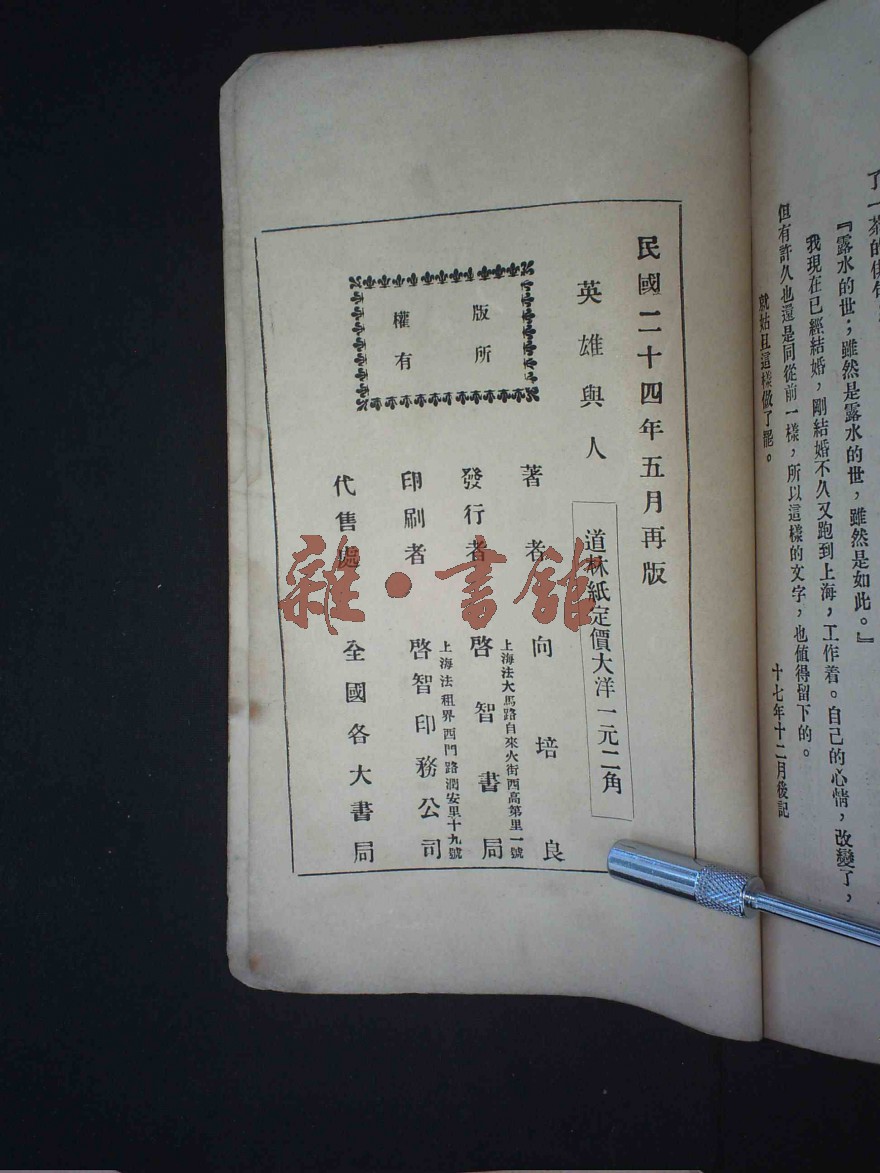 了一茶的俳句
『露水的世；雖然是露水的世，雖然是如此。』
我現在已經結婚，剛結婚不久又跑到上海，工作着。自己的心情，改變了，
但有許久也還是同從前一樣，所以這樣的文字，也值得留下的。
就姑且這樣做了罷。
十七年十二月後記
民國二十四年五月再版
英雄與人
道林紙定價大洋一元二角
版所
權有
著者 向培良
上海法大馬路自來火街西高第里一號
發行者 啓智書局
上海法租界西門路潤安里十九號
印刷者 啓智印務公司
代售處 全國各大書局
雜·書館